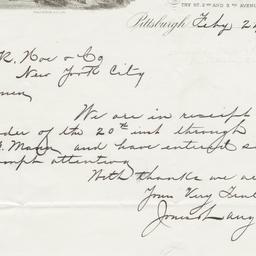 TRY ST. 2ND AND 3RD AVENU
Pittsburgh Feby 2
R. Hoe & Co
New York City
men
We are in receipt
der of the 20th inst through
and have entered s
prompt attention
With thanks we a
Yours Very Trul
Jones & Laug